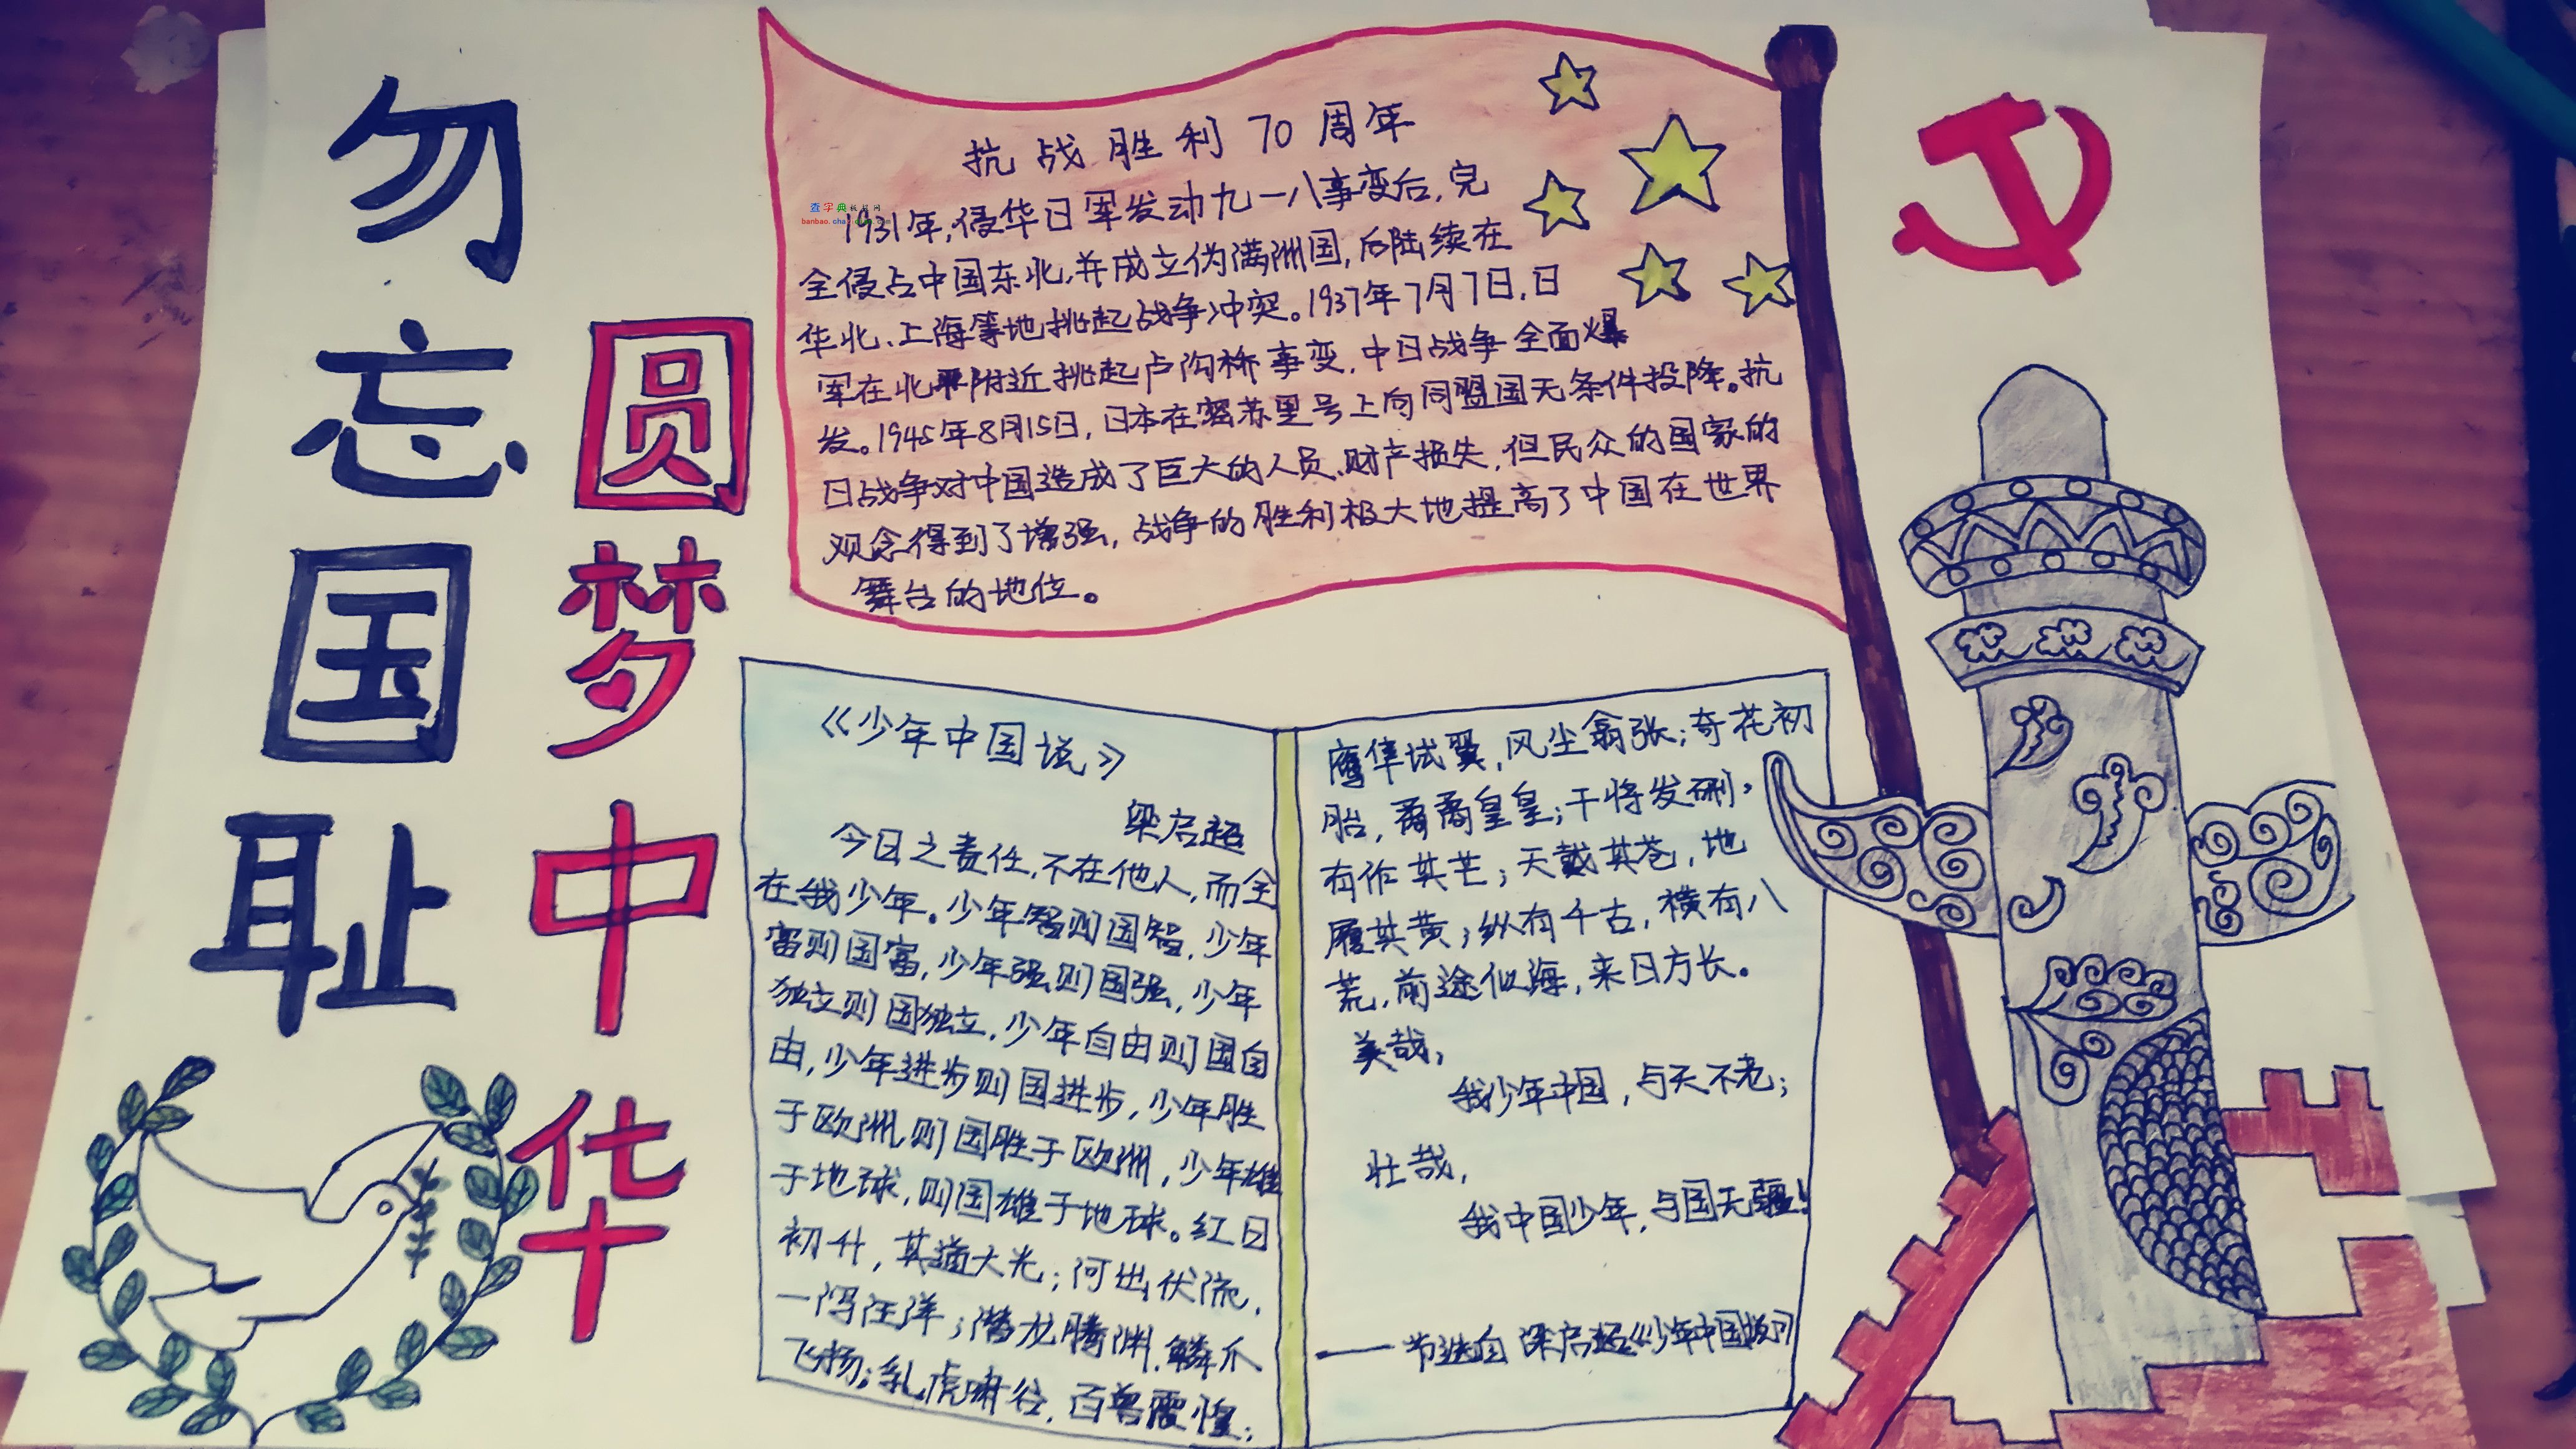 勿忘国耻
圆梦中华
抗战胜利70周年
查字典板报网
1931年,侵华日军发动九一八事变后,完
全侵占中国东北,并成立伪满洲国,后陆续在
华北、上海等地挑起战争冲突。1937年7月7日,日
军在北平附近挑起卢沟桥事变,中日战争全面爆
发。1945年8月15日,日本在密苏里号上向同盟国无条件投降。抗
日战争对中国造成了巨大的人员、财产损失,但民众的国家的
观念得到了增强,战争的胜利极大地提高了中国在世界
舞台的地位。
《少年中国说》
梁启超
今日之责任,不在他人,而全
在我少年。少年智则国智,少年
富则国富,少年强则国强,少年
独立则国独立,少年自由则国自
由,少年进步则国进步,少年胜
于欧洲,则国胜于欧洲,少年雄
于地球,则国雄于地球。红日
初升,其道大光;河出伏流,
一泻汪洋;潜龙腾渊,鳞爪
飞扬;乳虎啸谷,百兽震惶;
鹰隼试翼,风尘翕张;奇花初
胎,矞矞皇皇;干将发硎,
有作其芒;天戴其苍,地
履其黄;纵有千古,横有八
荒,前途似海,来日方长。
美哉,
我少年中国,与天不老;
壮哉,
我中国少年,与国无疆!
——节选自梁启超《少年中国